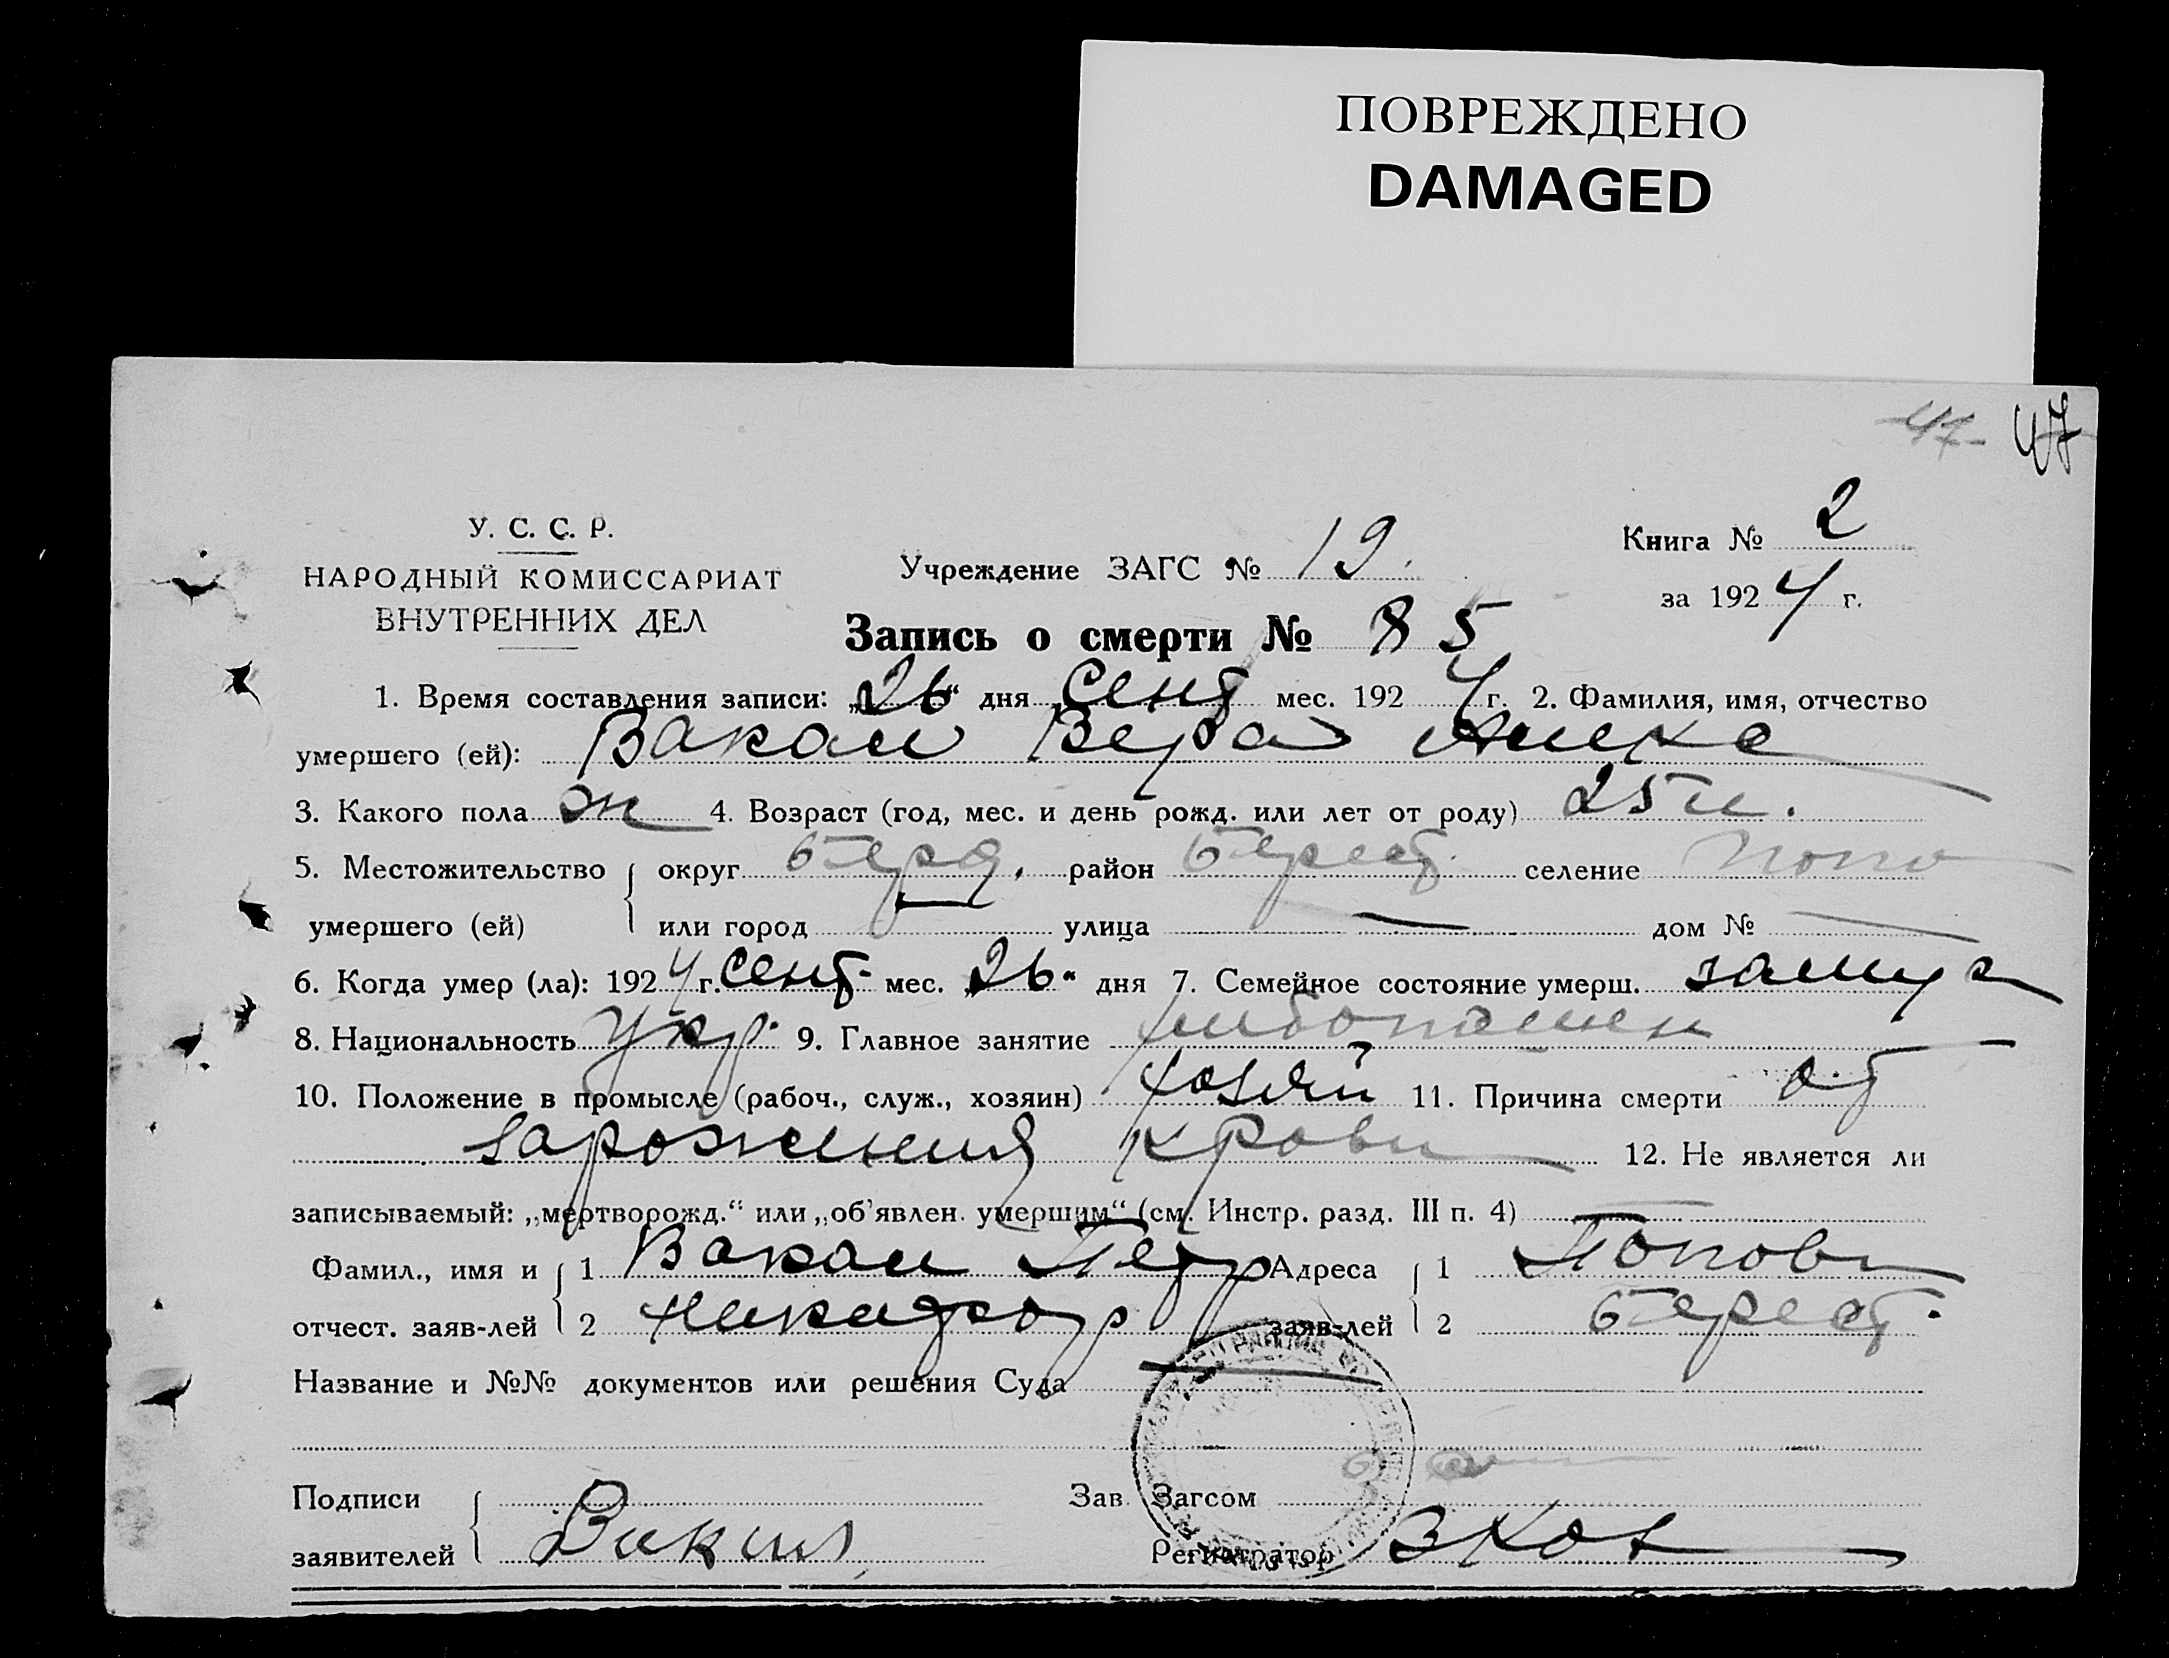 ПОВРЕЖДЕНО
DAMAGED
47 47
У. С. С. Р.
НАРОДНЫЙ КОМИССАРИАТ
ВНУТРЕННИХ ДЕЛ
Учреждение ЗАГС № 19.
Книга № 2
за 1924 г.
Запись о смерти № 85
1. Время составления записи: „26“ дня Сент мес. 1924 г. 2. Фамилия, имя, отчество
умершего (ей): Вакал Вера
3. Какого пола ж 4. Возраст (год, мес. и день рожд. или лет от роду) 25 л.
5. Местожительство округ Берд. район Берест. селение Попо
умершего (ей) или город — улица — дом № —
6. Когда умер (ла): 1924 г. Сент. мес. „26“ дня 7. Семейное состояние умерш. замуж
8. Национальность Укр. 9. Главное занятие хлебопашен
10. Положение в промысле (рабоч., служ., хозяин) хозяй 11. Причина смерти от
заражения крови 12. Не является ли
записываемый: „мертворожд.“ или „об’явлен. умершим“ (см. Инстр. разд. III п. 4) —
Фамил., имя и 1 Вакал Петр Адреса 1 Попов
отчест. заяв-лей 2 Никифор заяв-лей 2 Берест.
Название и №№ документов или решения Суда —
Подписи Зав. Загсом
заявителей Вакал Регистратор